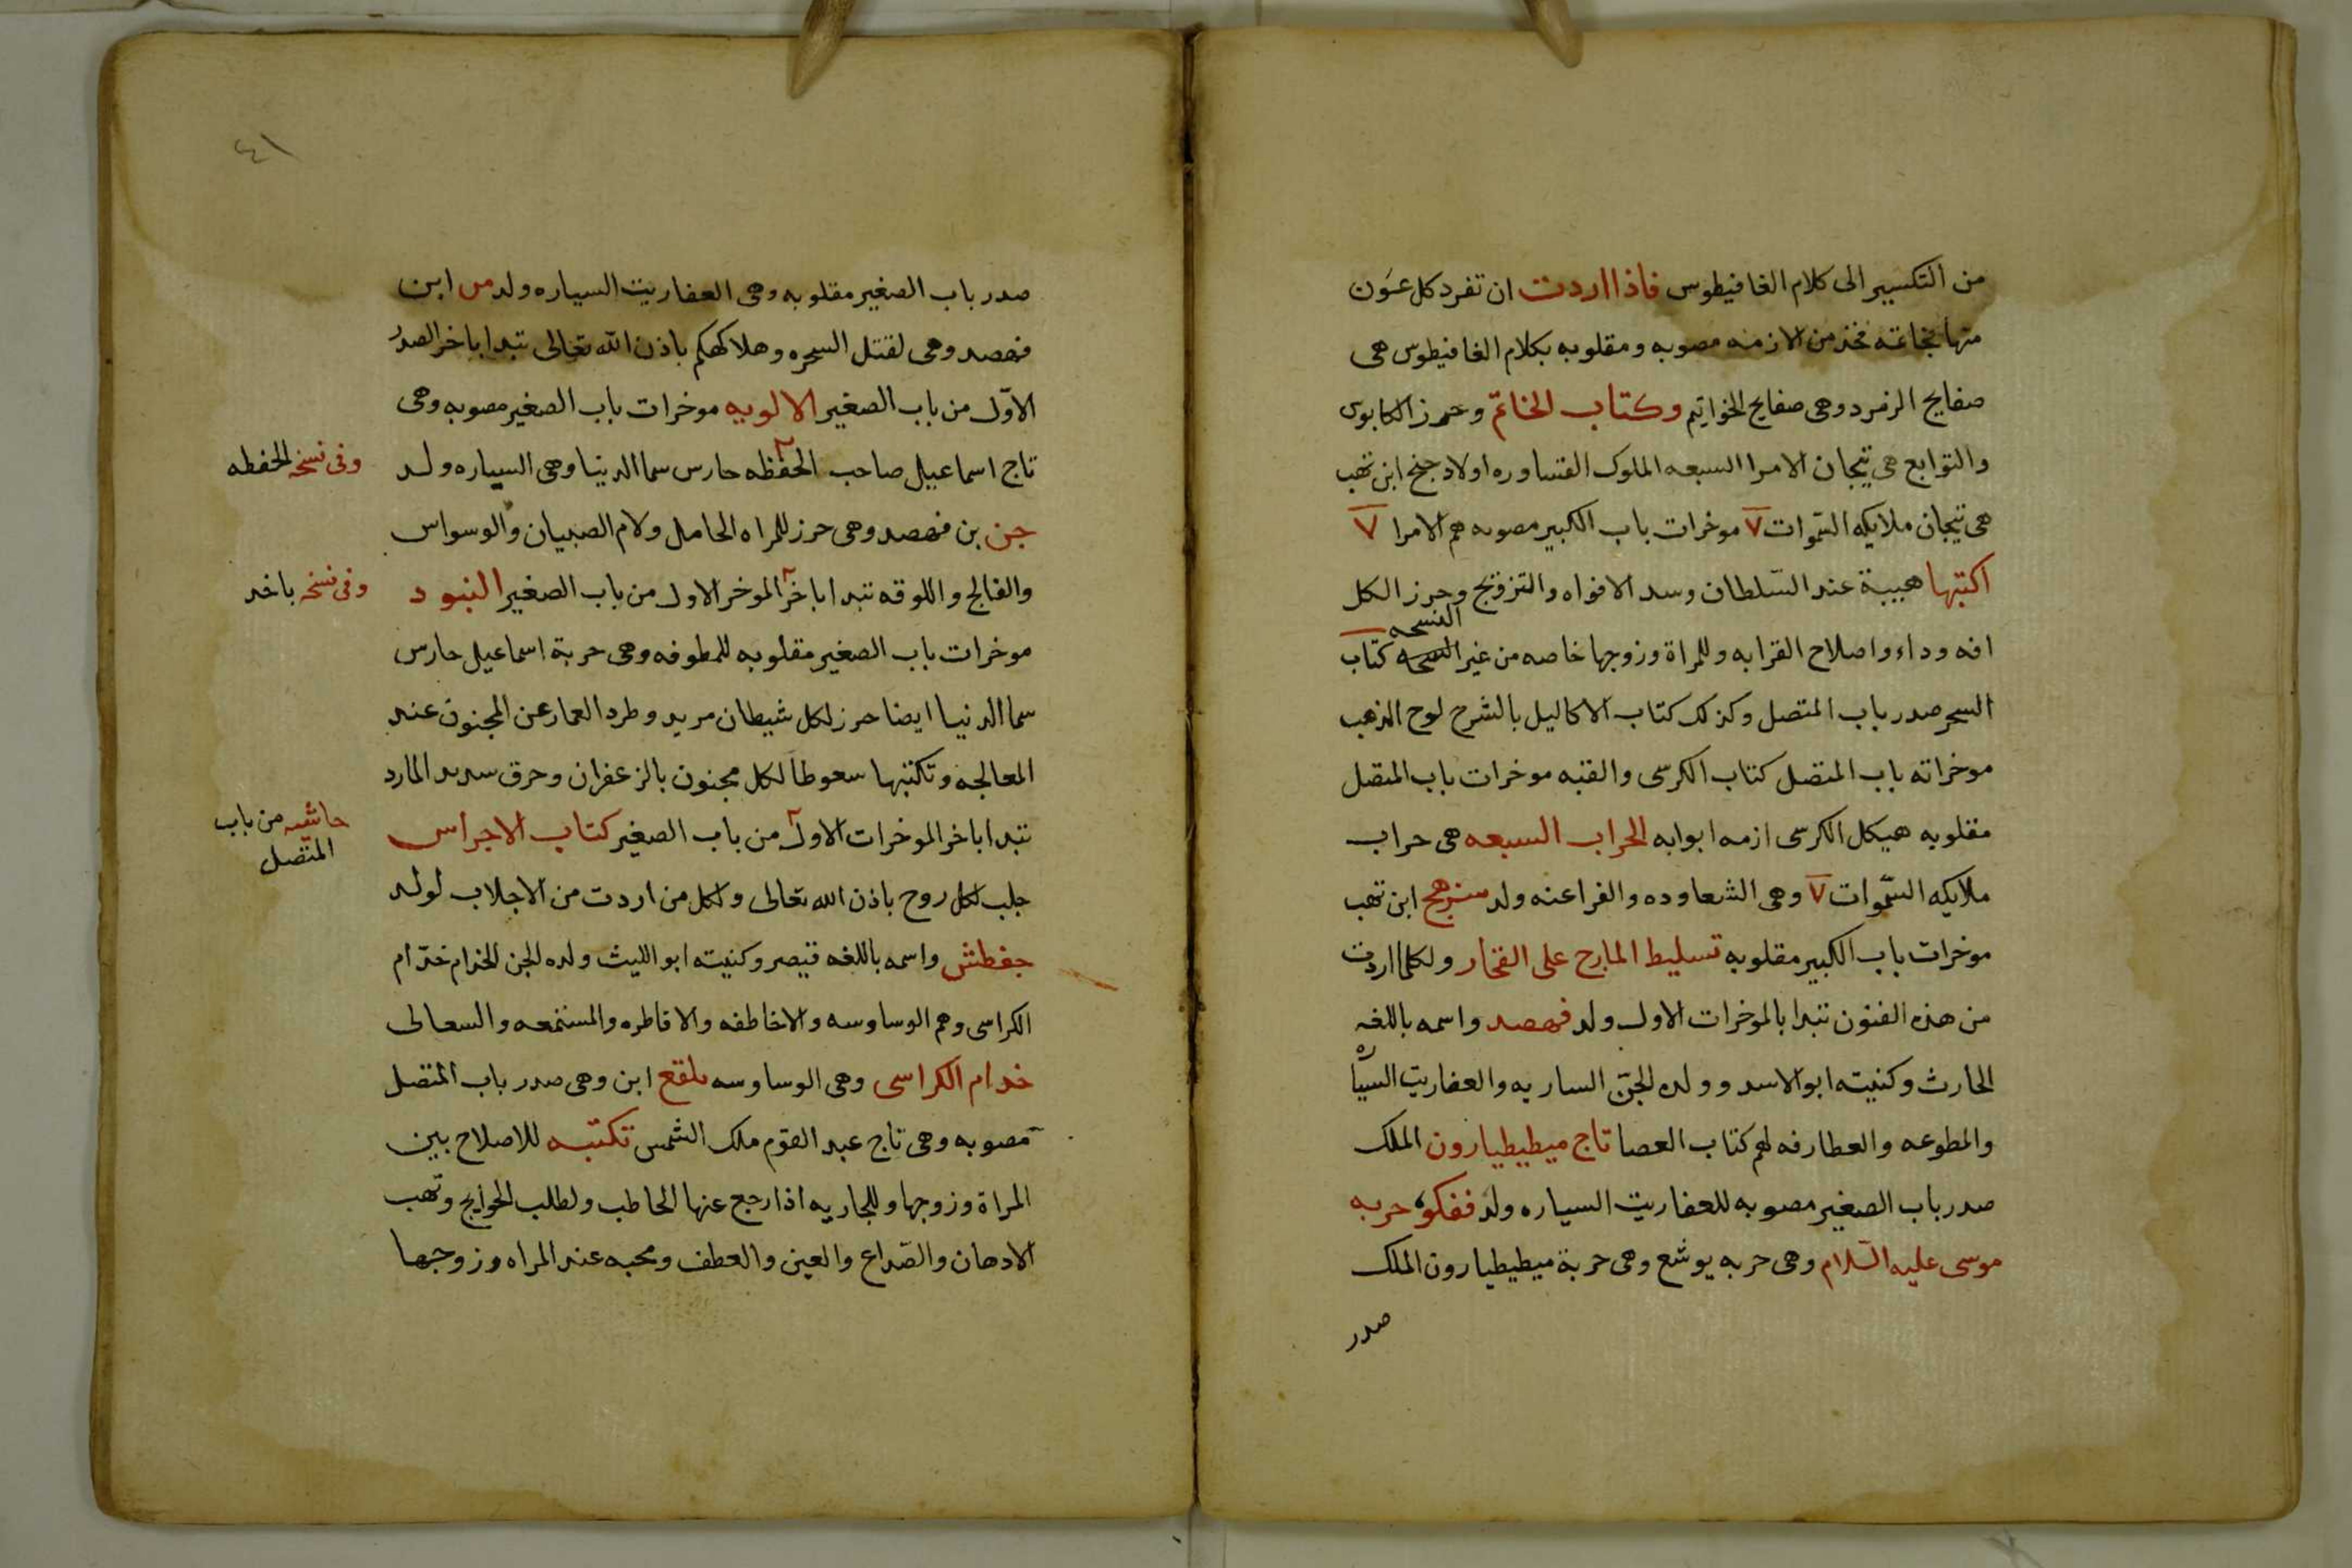 من التكسير الى كلام الغافيطوس فاذا اردت ان تفرد كل عون
منها بخاتمه فخذ من الازمنه مصوبه ومقلوبه بكلام الغافيطوس هى
صفايح الزمرد وهى صفايح الخواتيم وكتاب الخاتم وحرز الكابوس
والتوابع هى تيجان الامرا السبعه الملوك القساوره اولاد جنح ابن تهب
هى تيجان ملايكه السموات ٧ موخرات باب الكبير مصوبه هم الامرا ٧
اكتبها هيبة عند السلطان وسد الافواه والتزويج وحرز الكل
افه وداء واصلاح القرابه وللمراة وزوجها خاصه من غير النسخه كتاب
السحر صدر باب المتصل وكذلك كتاب الاكاليل بالشرح لوح الذهب
موخراته باب المتصل كتاب الكرسى والقبه موخرات باب المتصل
مقلوبه هيكل الكرسى ازمه ابوابه الحراب السبعه هى حراب
ملايكه السموات ٧ وهى الشعاوده والفراعنه ولد ابن تهب
موخرات باب الكبير مقلوبه تسليط المارج على الفخار ولكلما اردت
من هذه الفنون تبدا بالموخرات الاول ولد فهصد واسمه باللغه
الحارث وكنيته ابو الاسد وولده الجن الساريه والعفاريت السياره
والمطوعه والعطارفه لهم كتاب العصا تاج ميطيطيارون الملك
صدر باب الصغير مصوبه للعفاريت السياره ولد حربه
موسى عليه السلام وهى حربه يوشع وهى حربة ميطيطيارون الملك
صدر
٤١
صدر باب الصغير مقلوبه وهى العفاريت السياره ولد من ابن
فهصد وهى لقتل السحره وهلاكهكم باذن الله تعالى تبدا باخر الصدر
الاول من باب الصغير الالويه موخرات باب الصغير مصوبه وهى
تاج اسماعيل صاحب الحفظه حارس سما الدنيا وهى السياره ولد
وفى نسخه الحفطه
جن بن فهصد وهى حرز للمراه الحامل ولام الصبيان والوسواس
والفالج واللوقه تبدا باخر الموخر الاول من باب الصغير البنود
وفى نسخه باخد
موخرات باب الصغير مقلوبه للمطوفه وهى حربة اسماعيل حارس
سما الدنيا ايضا حرز لكل شيطان مريد وطرد العمار عن المجنون عند
المعالجه وتكتبها سعوطا لكل مجنون بالزعفران وحرق المارد
تبدا باخر الموخرات الاول من باب الصغير كتاب الاجراس
حاشيه من باب
المتصل
جلب لكل روح باذن الله تعالى ولكل من اردت من الاجلاب لولد
جغطش واسمه باللغه قيصر وكنيته ابو الليث ولده الجن الخدام خدام
الكراسى وهم الوساوسه والاخاطفه والاقاطره والسعالى
خدام الكراسى وهى الوساوسه ابن وهى صدر باب المتصل
مصوبه وهى تاج عبد القوم ملك الشمس تكتبه للاصلاح بين
المراة وزوجها وللجاريه اذا رجع عنها الخاطب ولطلب الحوايج وتهب
الادهان والصداع والعين والعطف ومحبه عند المراه وزوجها